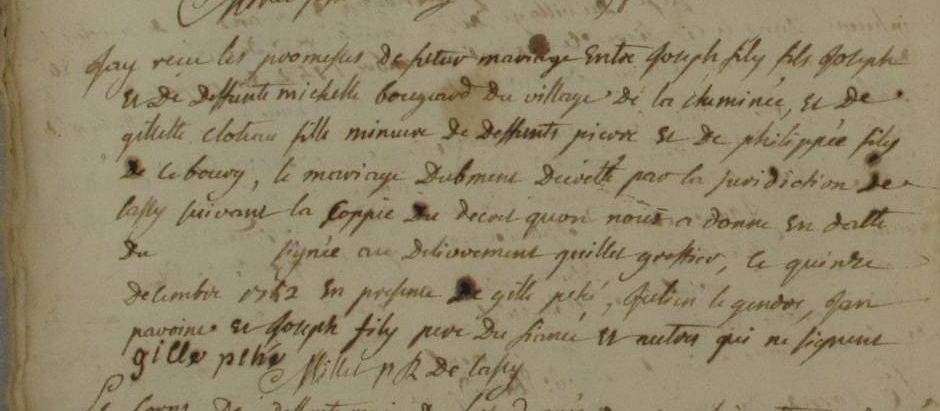 Jay receu les promesses de futur mariage Entre Joseph fily fils Joseph
Et de deffunte michelle bougeard du village de la cheminée, Et de
gillette cloteau fille mineure de deffunts pierre Et de philippée fily
de ce bourg, le mariage dubment decretté par la juridiction de
lassy suivant la Coppie du decret quon nous a donné En datte
du signée au delivrement quillet greffier, ce quinze
decembre 1752 En presence de gille pehé, Julien le gendre, Jan
pavoine Et Joseph fily pere du fiancé Et autres qui ne signent
gille pehé
Millet p R De lassy